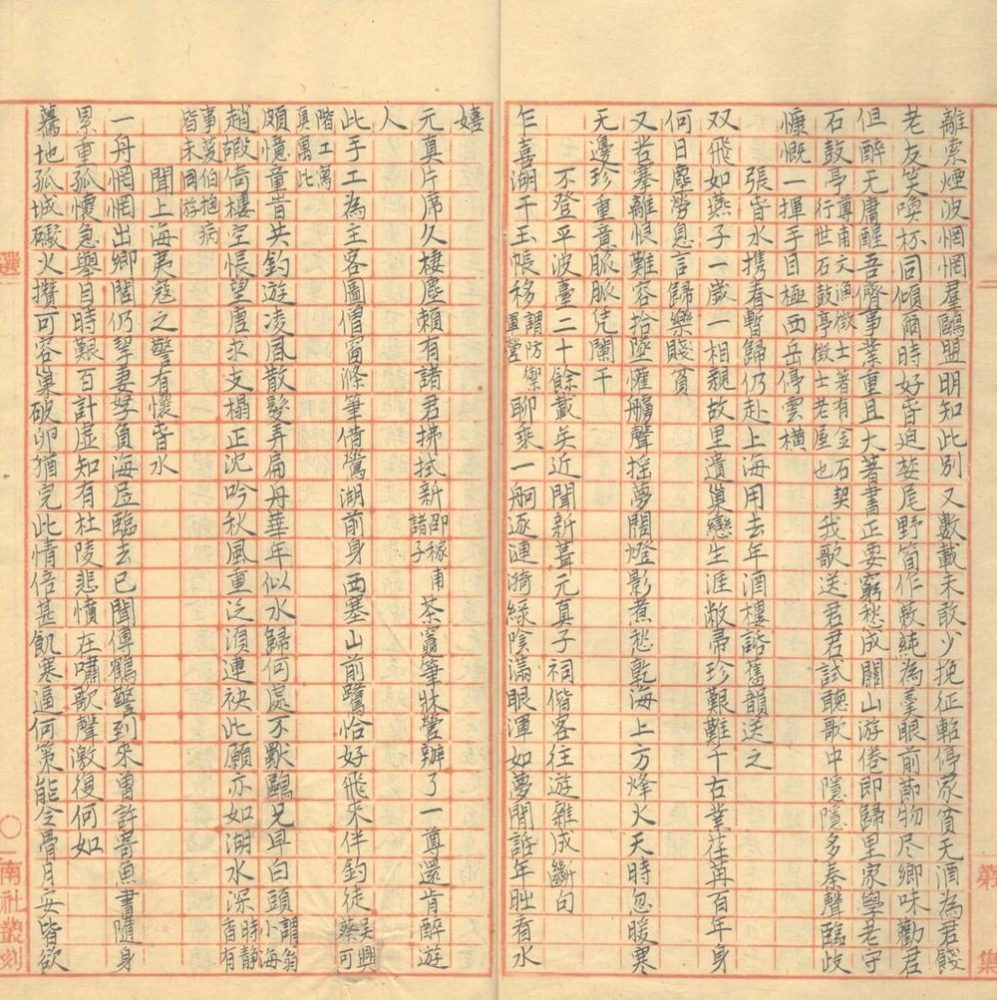 離索煙波惘惘羣鷗盟明知此別又數載未敢少挽征軺停家貧无酒為君餞
老友笑喫杯同傾爾時好音迫婪尾野筍作蔌蒓為羹眼前節物尽鄉味勸君
但醉无庸醒吾儕事業重且大著書正要窮愁成關山游倦即歸里家學老守
石鼓亭行世石鼓亭徵士老屋也尊甫文漁徵士著有金石契我歌送君君試聽歌中隱隱多秦聲臨歧
慷慨一揮手目極西岳停雲橫
張昚水携眷暫歸仍赴上海用去年酒樓諧舊韻送之
双飛如燕子一歲一相親故里遺巢戀生涯敝帚珍艱難千古業荏苒百年身
何日塵勞息言歸樂賤貧
又若搴離恨難容拾墜懽艣聲搖夢闊燈影煮愁乾海上方烽火天時忽暖寒
无邊珍重意脈脈凭闌干
不登平波臺二十餘載矣近聞新葺元真子祠偕客往游雜成斷句
乍喜湖干玉帳移謂防禦軍營聊乘一舸逐漣漪綠陰滿眼渾如夢閒話年時看水
嬉
元真片席久棲塵賴有諸君拂拭新邵稼甫諸子茶竈筆牀營辦了一尊還肯醉游
人
此手工為主客圖僧窗滌筆借鶯湖前身西塞山前鷺恰好飛來伴釣徒吳興蔡可
階工寫真寓此
頗憶童昔共釣遊凌風散髮弄扁舟華年似水歸何處不獨鷗兄早白頭謂小海翁
趙嘏倚樓空悵望唐求支榻正沈吟秋風重泛須連袂此願亦如湖水深時靜香有
事菱伯抱病皆未同游
聞上海夷寇之警有懷昚水
一舟惘惘出鄉閭仍挈妻孥負海居臨去已聞傳鶴警到來曾許寄魚書隨身
累重孤懷急舉目時艱百計虛知有杜陵悲憤在嘯歌聲激復何如
驀地孤城礮火攢可容巢破卵猶完此情倍甚飢寒逼何策能令骨月安皆欲
選
南社叢刻
第
集